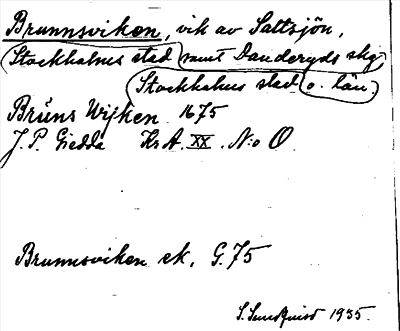 Brunnsviken, vik av Saltsjön,
Stockholms stad samt Danderyds skg
Stockholms stad o. län.
Brüns Wijken 1675
J. P. Giedda Kr A. XX. N:o O
Brunnsviken ek. G. 75
S. Sundquist 1935.